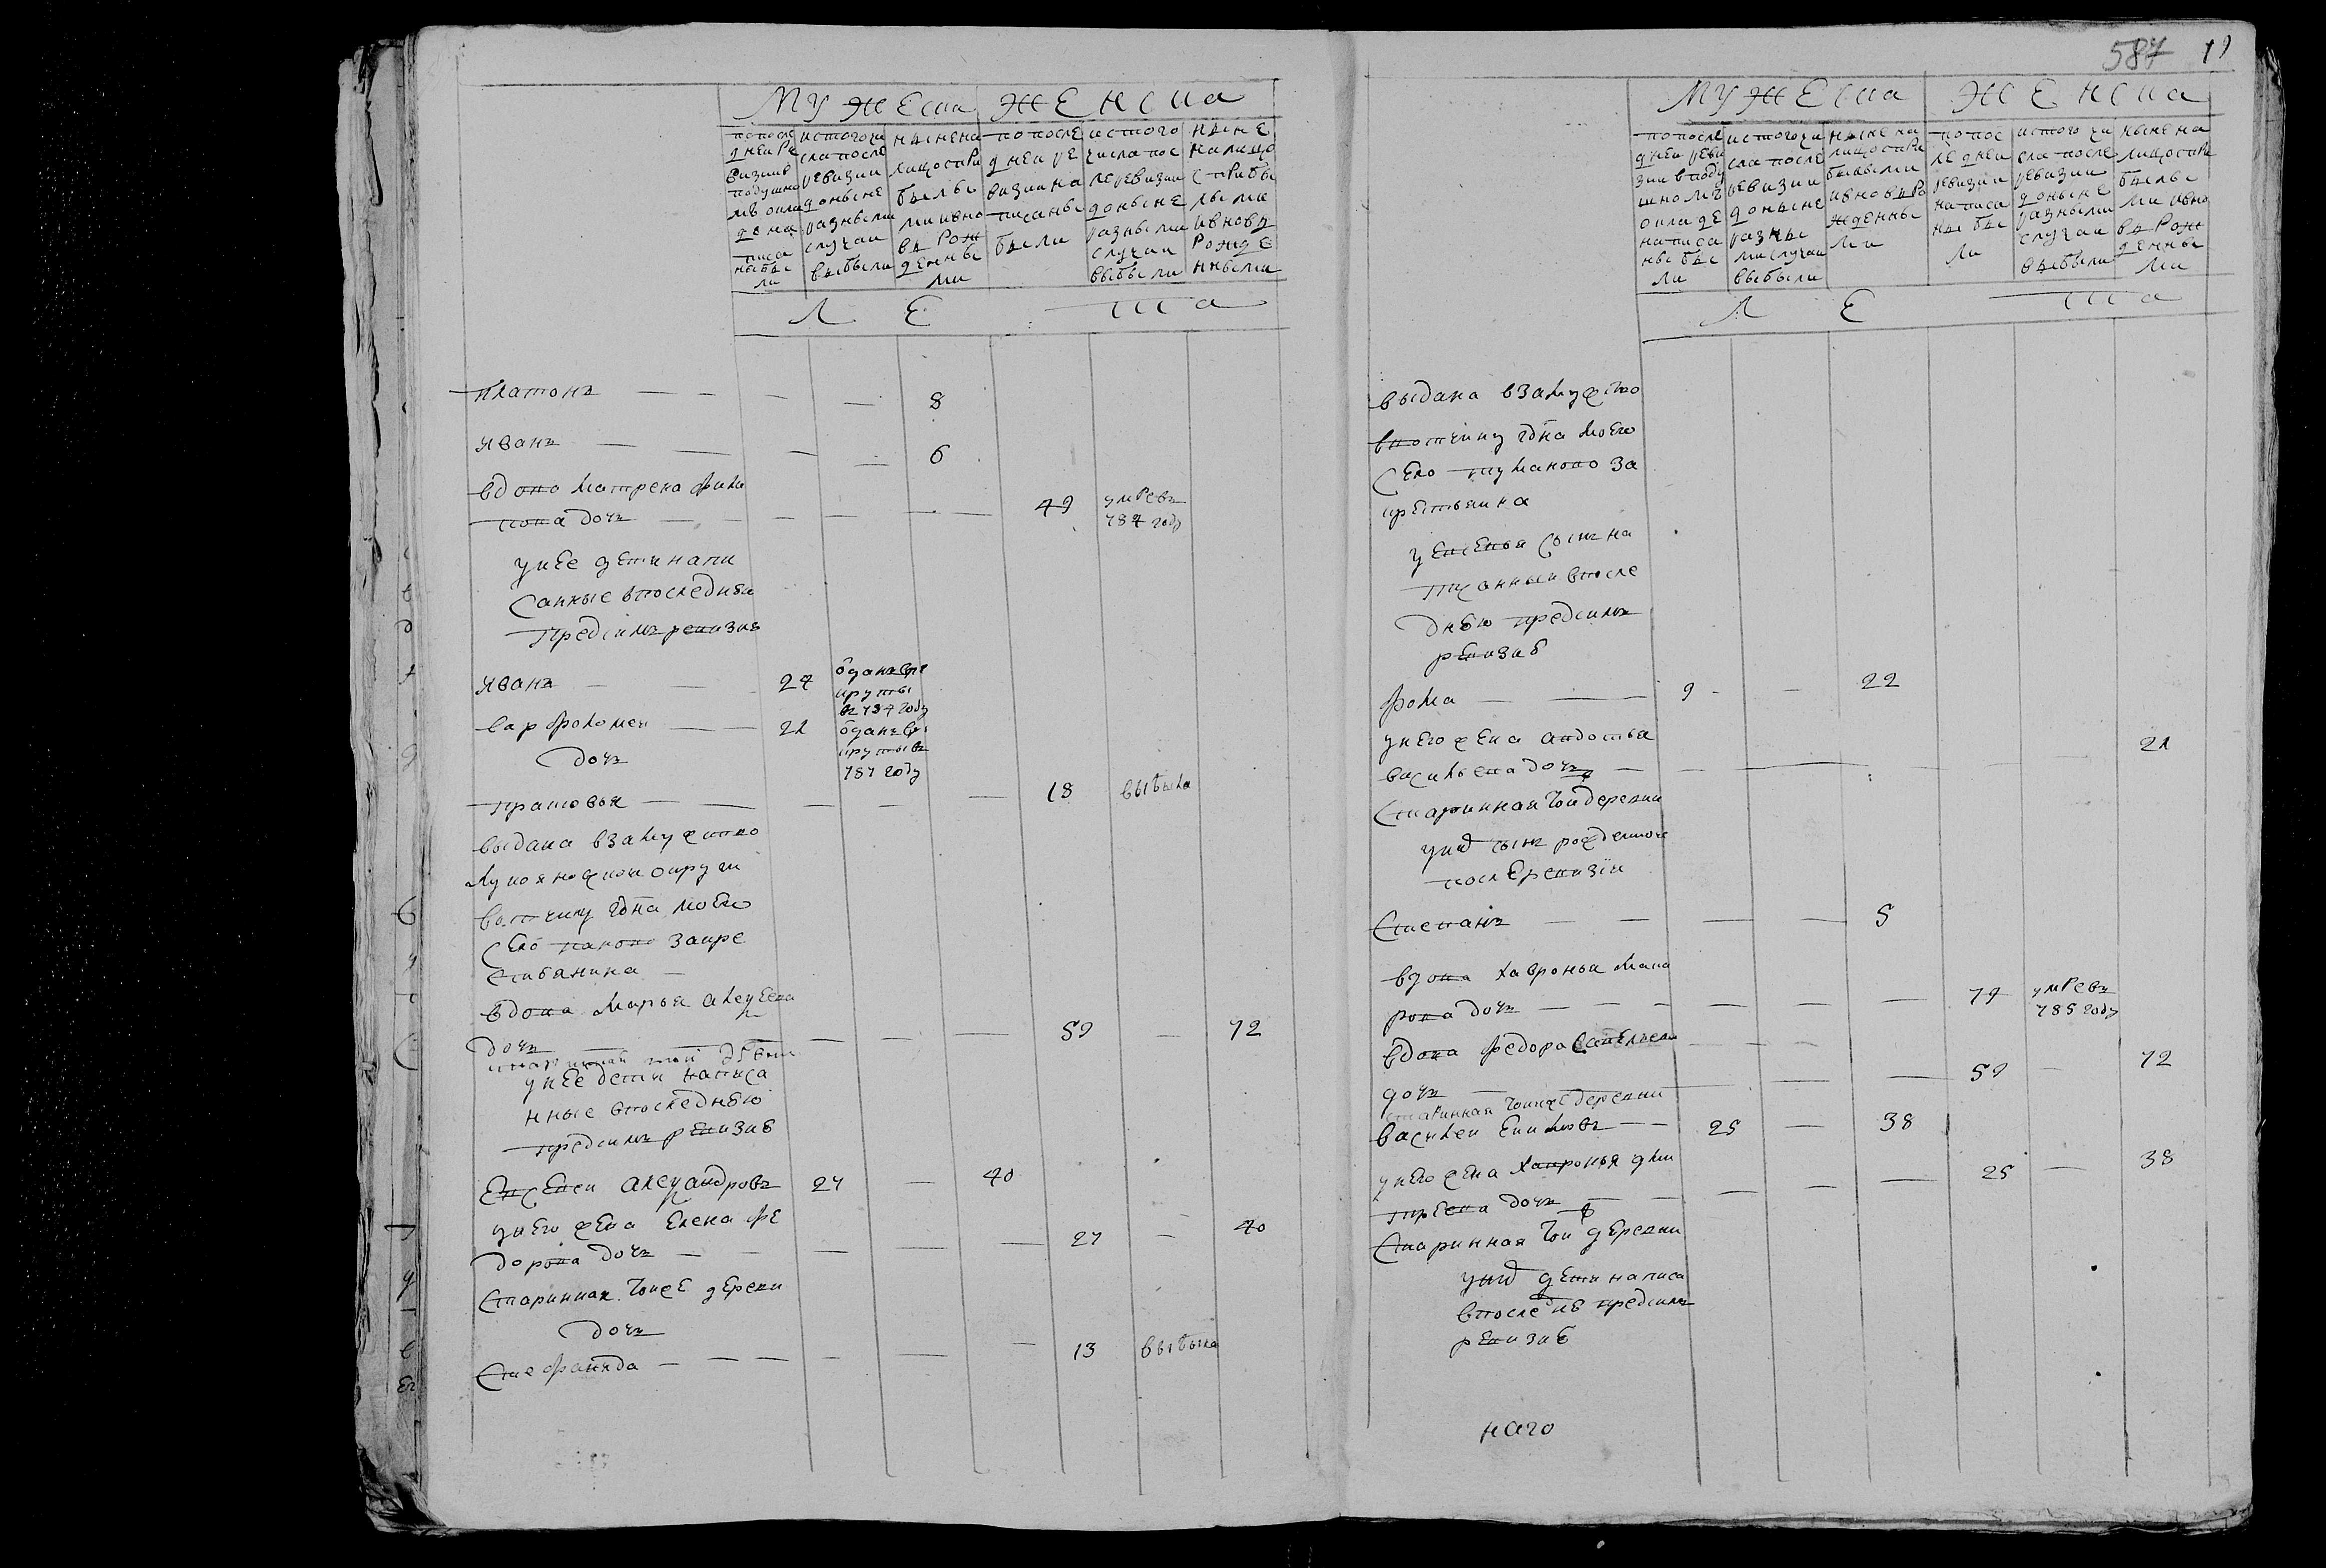 587 19
МУЖЕСКА ЖЕНСКА
по после
дней ре
визии в
подушно
мъ окла
де на
писа
ны бы
ли
ис того чи
сла после
ревизии
доныне
разными
случаи
выбыли
ныне на
лицо с при
былы
ми и вно
вь рож
денны
ми
по после
дней ре
визии на
писаны
были
ис того
числа пос
ле ревизии
доныне
разными
случаи
выбыли
ныне
на лицо
с прибы
лыми
и вновь
рожде
нными
Л Е Та
платонъ — — — — 8
иванъ — — — — 6
вдова матрена фили
пова дочь — — — — — 49 умре въ
787 году
у нее дети напи
санные в последнюю
пред симъ ревизию
иванъ — — 24 одан в ре
круты
въ 787 году
варфоломеи — 21 одан в ре
круты въ
787 году
дочь
прасковья — — — — — 18 выбыла
выдана в замужство
лукояновскои округи
вотчину гдна моего
село паново за кре
стьянина —
вдова марья алеѯеева
дочь — — — — — 59 — 72
у нее дети написа
нные в последнюю
пред симъ ревизию
евсевеи алеѯандровъ 27 — 40
у него жена елена фе
дорова дочь — — — — — 27 — 40
старинная тои же деревни
дочь
стефанида — — — — — — 13 выбыла
МУЖЕСКА ЖЕНСКА
по после
дней реви
зии в поду
шномъ
окладе
написа
ны бы
ли
ис того чи
сла после
ревизии
доныне
разны
ми случаи
выбыли
ныне на
лицо с при
былыми
и вновь ро
жденны
ми
по пос
ледней
ревизии
написа
ны бы
ли
ис того чи
сла после
ревизии
доныне
разными
случаи
выбыли
ныне на
лицо с при
былы
ми и вно
вь рож
денны
ми
Л Е Та
выдана в замужство
вотчину гдна моего
село туманово за
крестьянина
у евсевья сынъ на
писанныи в после
днюю пред симъ
ревизию
фома — — 9 — — 22
у него жена авдотья
васильева дочь — — — — — 21
старинная тои деревни
у них сынъ рожденнои
после ревизiи
степанъ — — — — 5
вдова хавронья мака
рова дочь — — — — — — 79 умре въ
785 году
вдова федора савельева
дочь — — — — 59 — 72
старинная тои же деревни
василеи екимовъ — — 25 — 38
у него жена хавронья дми
триева дочь — — — — — 25 — 38
старинная тои деревни
у них дети написа
в последнюю пред симъ
ревизию
наго